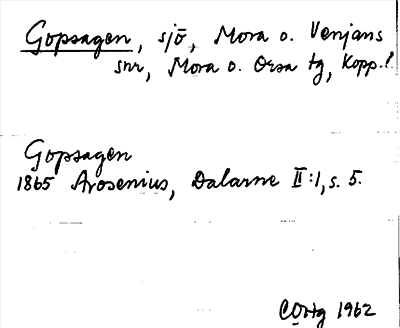 Gopsagen, sjö, Mora o. Venjans
snr, Mora o. Orsa tg, Kopp. l.
Gopsagen
1865 Arosenius, Dalarne II:1, s. 5.
1962